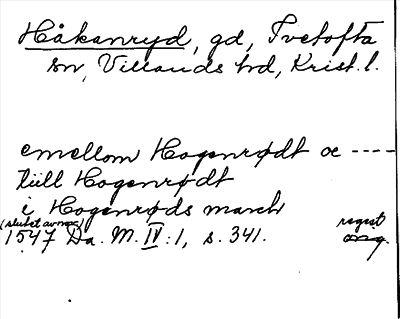 Håkanryd, gd, Ivetofta
sn, Villands hd, Krist. l.
emellom Hogenrødt oc ----
tiill Hogenrødt
i Hogenrøds march
(slutet av nov.)
1547 Da. M. IV:1, s. 341.
regist
orig.